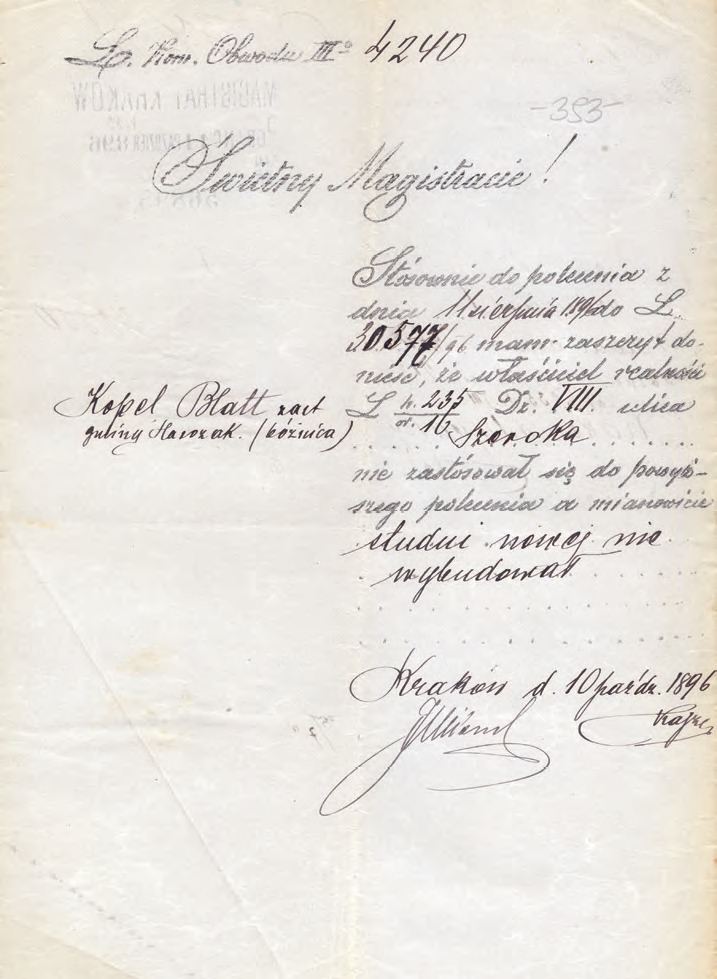 L. Kom. Obwodu III º 4240
-353-
Świetny Magistracie!
Stósownie do polecenia z
dnia 11 sierpnia 1896 do L
30577/96 mam zaszczyt do-
nieść, że właściciel realności
L h. 235 Dz. VIII. ulica
or. 16 Szeroka
nie zastósował się do powyż-
szego polecenia a mianowicie
studni nowej nie
wybudował
Kopel Blatt zast
gminy (bóżnica)
Kraków d. 10 paźdz. 1896